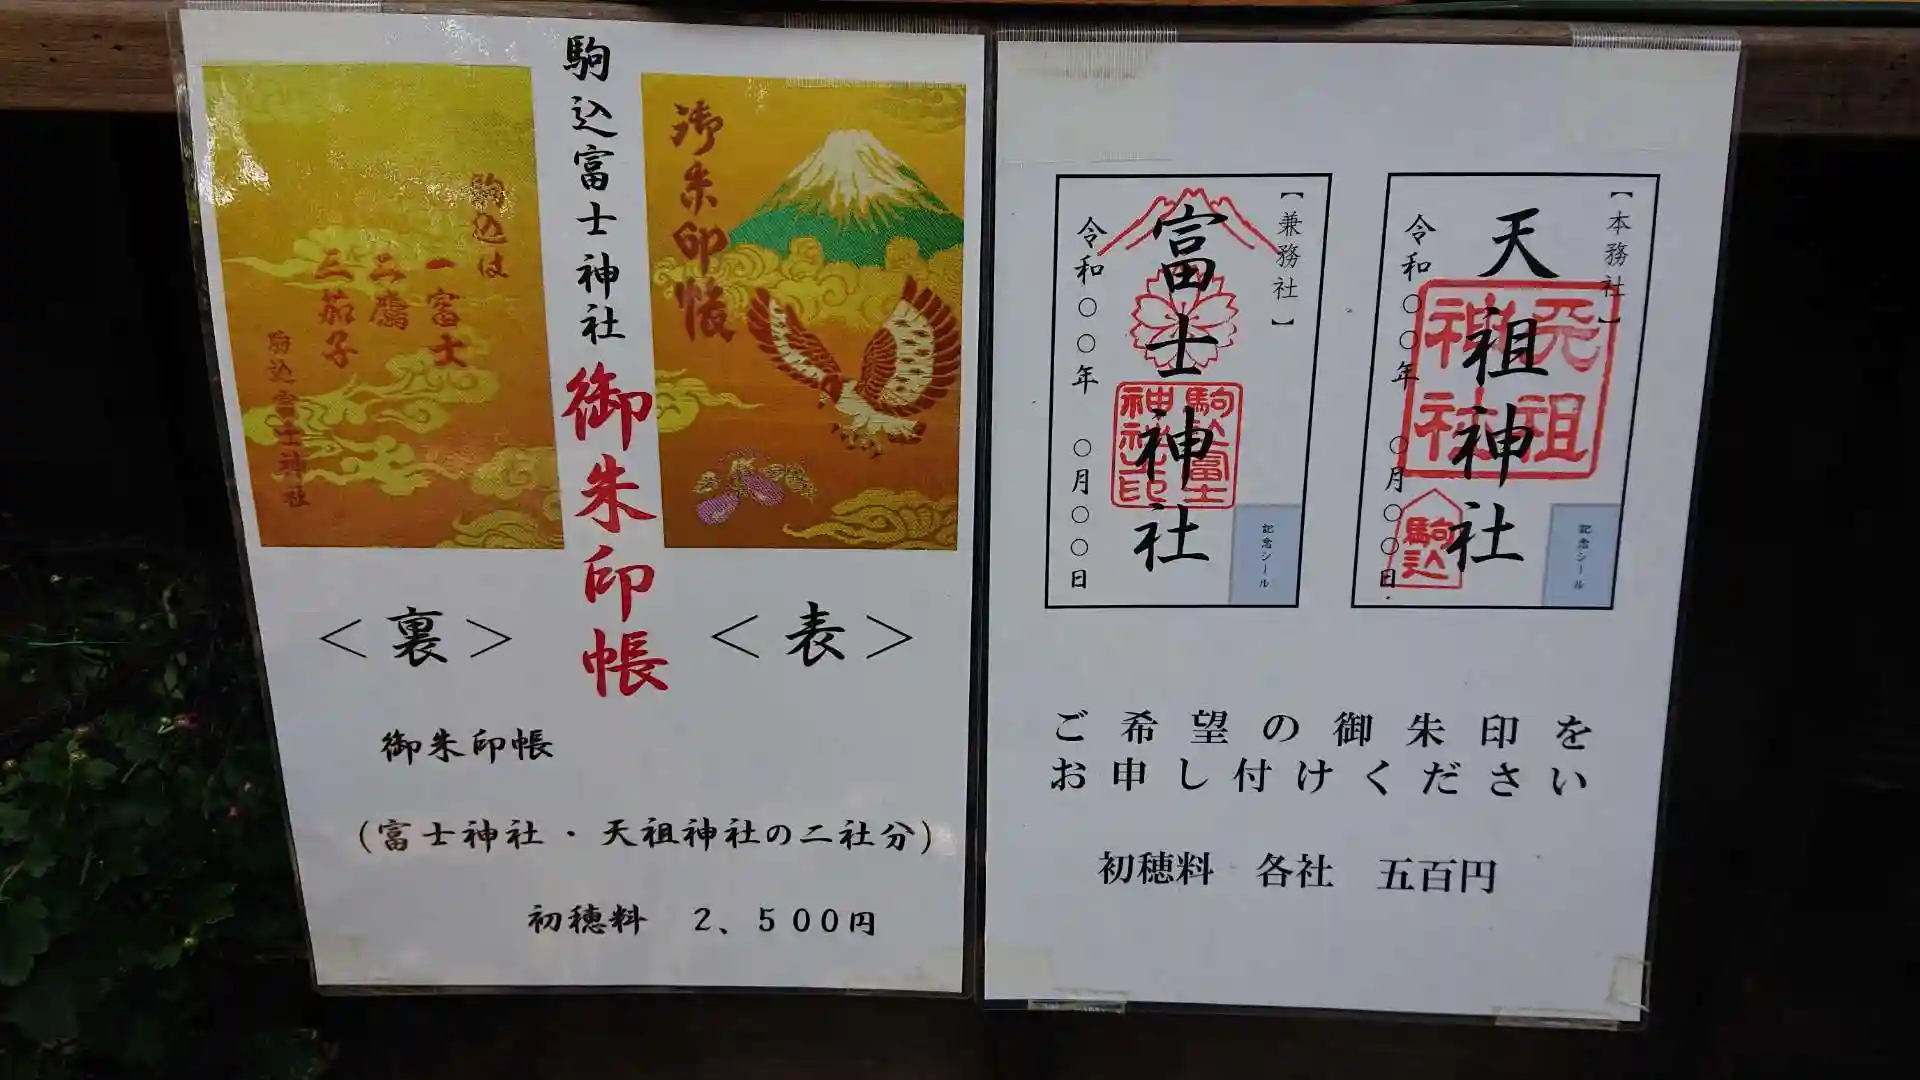 駒込富士神社 御朱印帳
御朱印帳
駒込は
一富士
二鷹
三茄子
駒込富士神社
＜裏＞
＜表＞
御朱印帳
（富士神社・天祖神社の二社分）
初穂料　２、５００円
【本務社】
天祖神社
令和〇〇年　〇月〇〇日
駒込
記念シール
【兼務社】
富士神社
駒込富士
神社之印
令和〇〇年　〇月〇〇日
記念シール
ご希望の御朱印を
お申し付けください
初穂料　各社　五百円